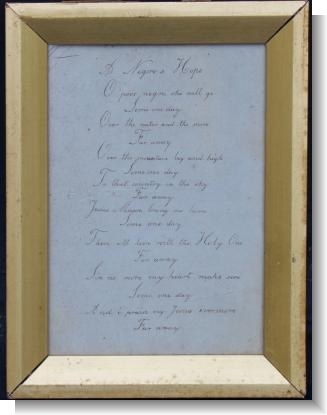 A Negro's Hope
O poor negro he will go
Some one day
Over the water and the snow
Far away
Over the mountain big and high
Some one day
To that country in the sky
Far away
Jesus Mason bring me home
Some one day
Then I'll live with the Holy One
Far away
Sin no more my heart make sore
Some one day
And I praise my Jesus evermore
Far away